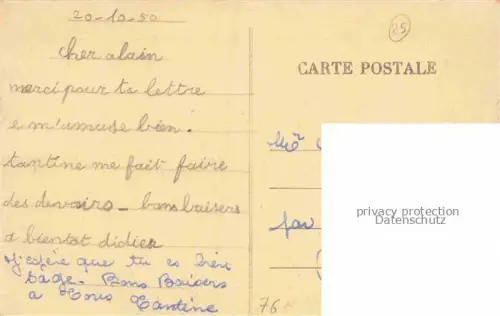 20-10-50
cher alain
merci pour ta lettre
e m'amuse bien.
tantine me fait faire
des devoirs - bons baisers
a bientot didier
J'espère que tu es très
sage. Bons Baisers
a Tous Tantine
25
CARTE POSTALE
Mr
par
76
privacy protection
Datenschutz